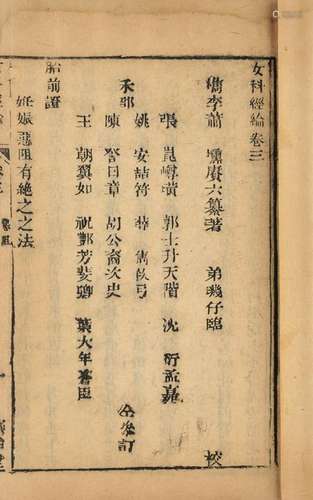 女科經綸卷三
檇李蕭壎賡六纂著 弟璣仔臨 校
張崑嶂黃 郭士升天階 沈衍孟嘉
姚安喆符 弓
禾郡 仝參訂
陳譽日章 胡公裔次史
王朝翼如 祝鄷芳斐卿 葉大年耆臣
胎前證
妊娠惡阻有絶之之法